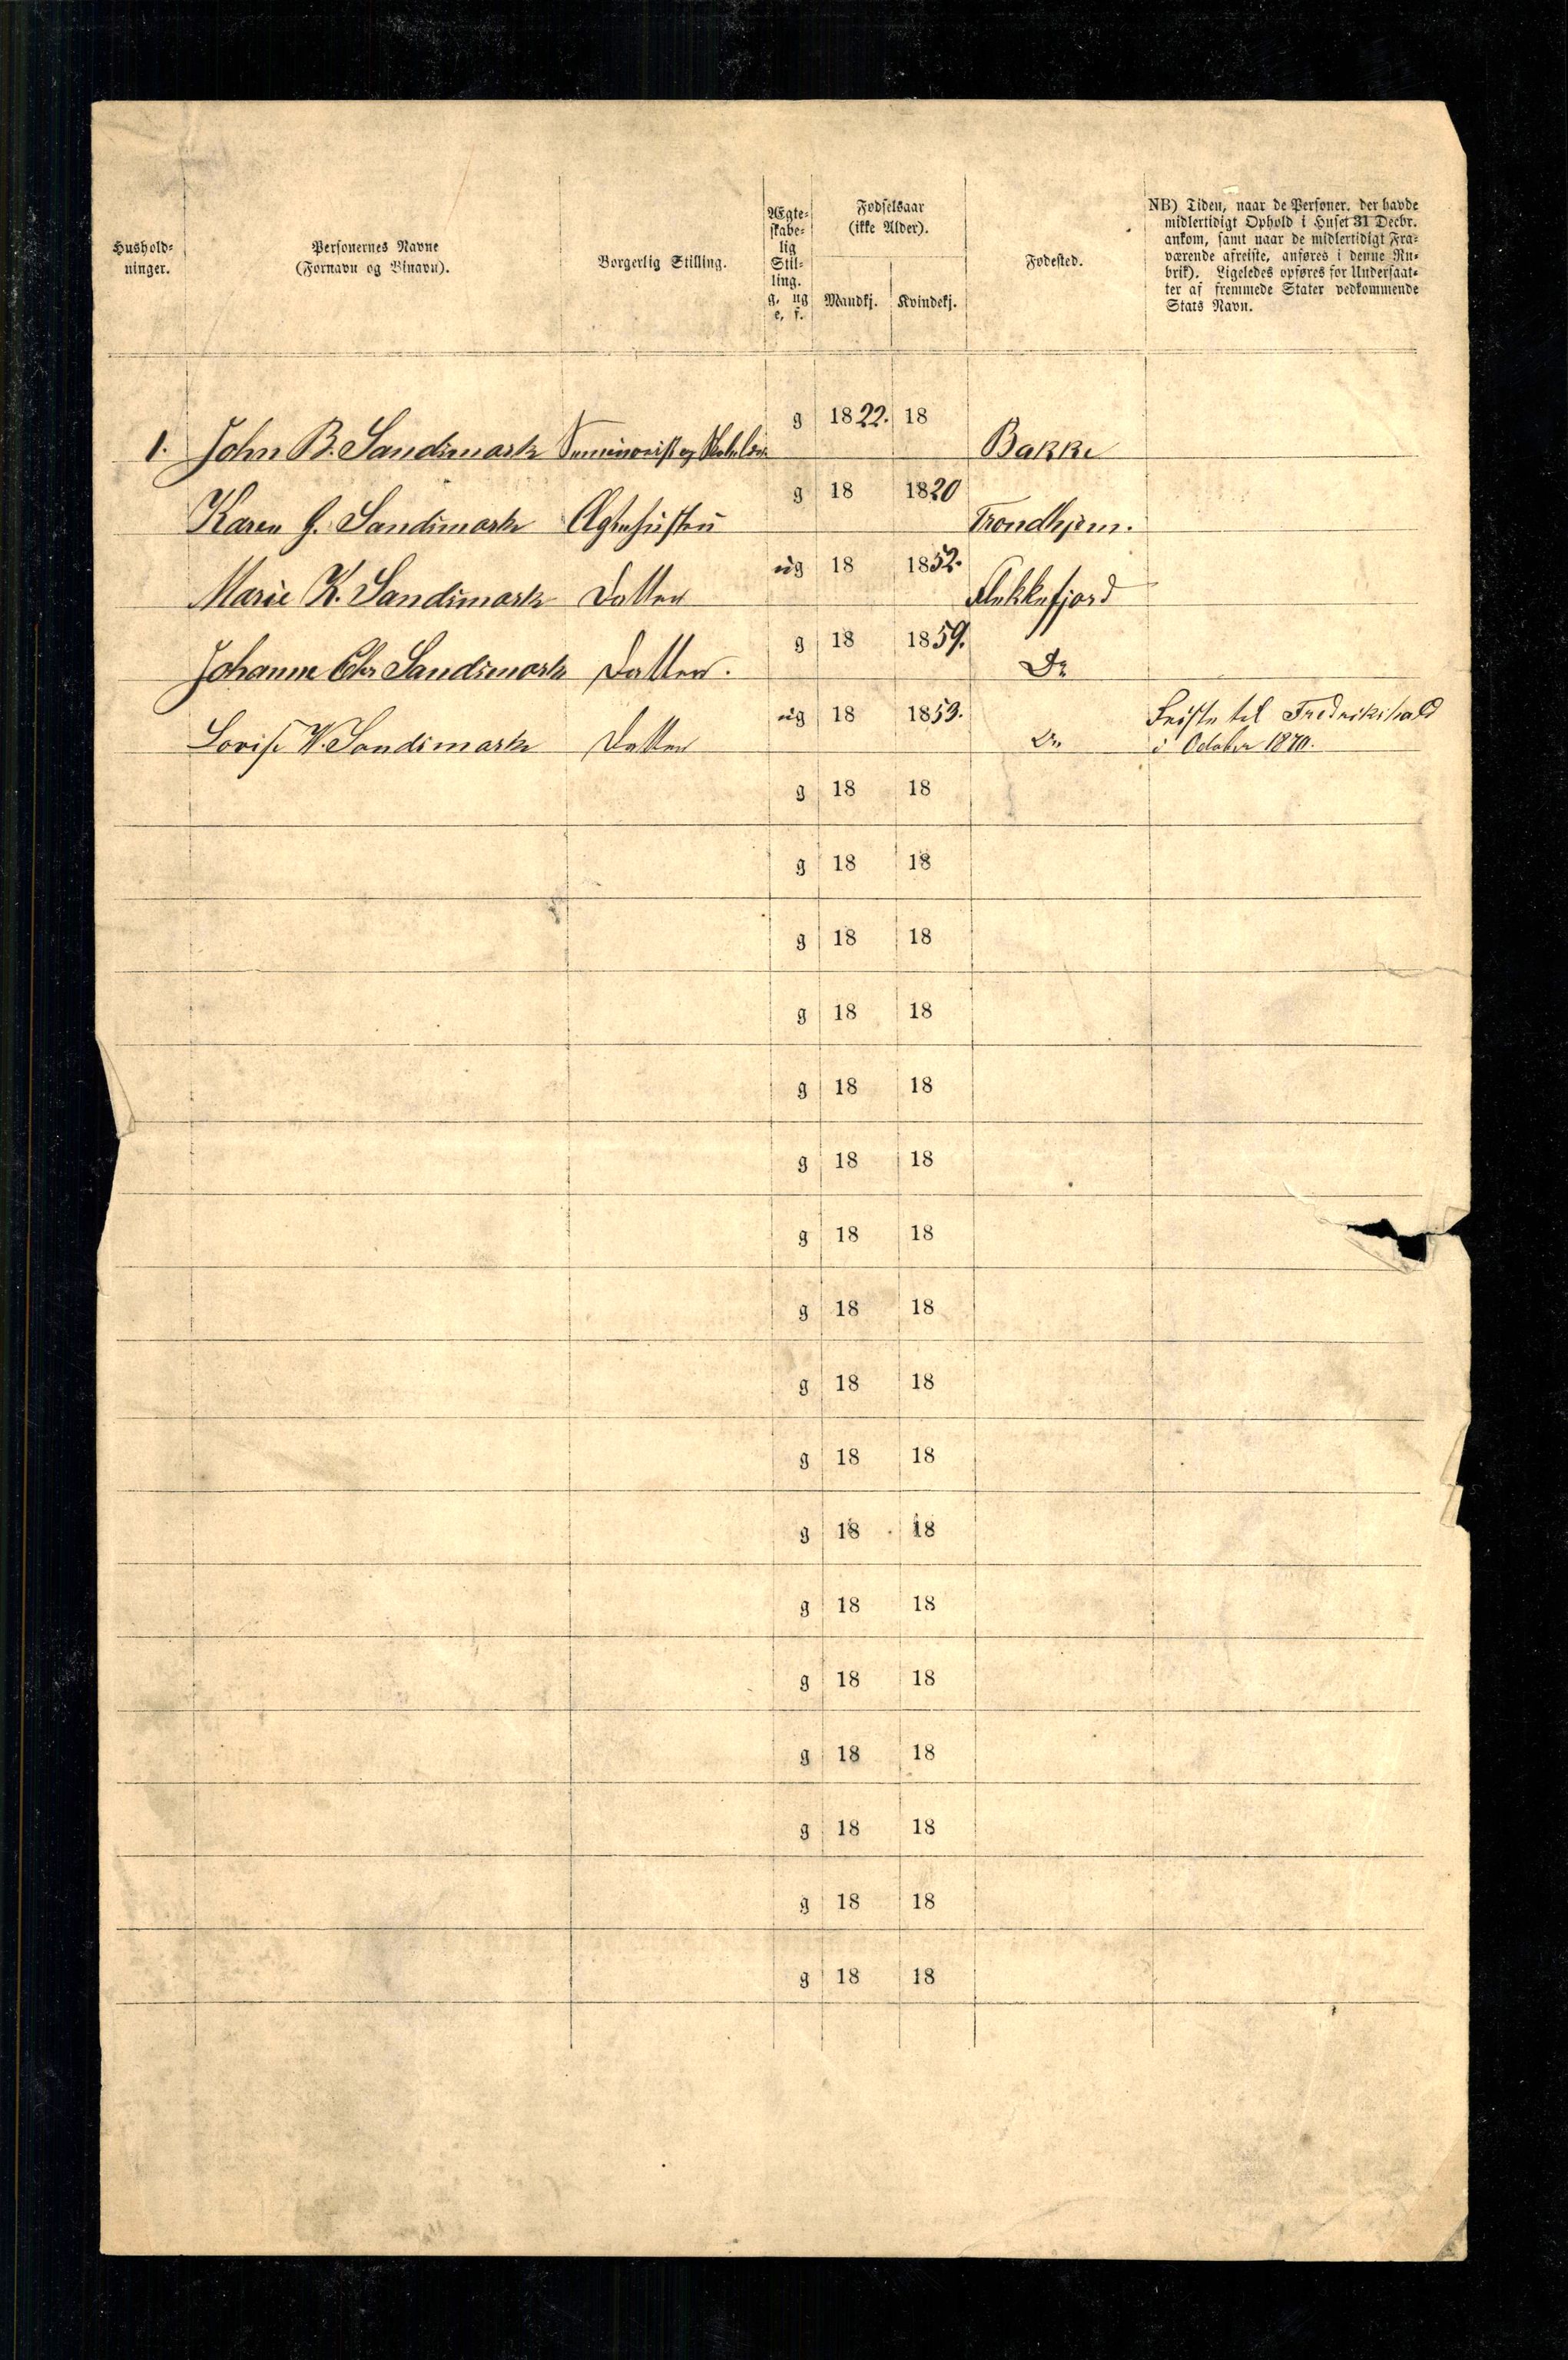 Hushold-
ninger.
Personernes Navne
(Fornavn og Binavn).
Borgerlig Stilling.
Ægte-
skabe-
lig
Stil-
ling.
g. ug
e, f.
Fødselsaar
(ikke Alder).
Mandkj. Kvindekj.
Fødested.
NB) Tiden, naar de Personer. der havde
midlertidigt Ophold i Huset 31 Decbr.
ankom, samt naar de midlertidigt Fra-
værende afreiste, anføres i denne Ru-
brik). Ligeledes opføres for Undersaat-
ter af fremmede Stater vedkommende
Stats Navn.
1. John B. Sandsmark Seminarist og g 1822. 18 Bakke
Karen G. Sandsmark Ægtehustru g 18 1820 Trondhjem.
Marie K. Sandsmark Datter ug 18 1852. Flekkefjord
Johanne Chr Sandsmark Datter. g 18 1859. Do
Lovise W. Sandsmark Datter ug 18 1853. Do Reiste til Fredrikshald
i October 1870.
g 18 18
g 18 18
g 18 18
g 18 18
g 18 18
g 18 18
g 18 18
g 18 18
g 18 18
g 18 18
g 18 18
g 18 18
g 18 18
g 18 18
g 18 18
g 18 18
g 18 18